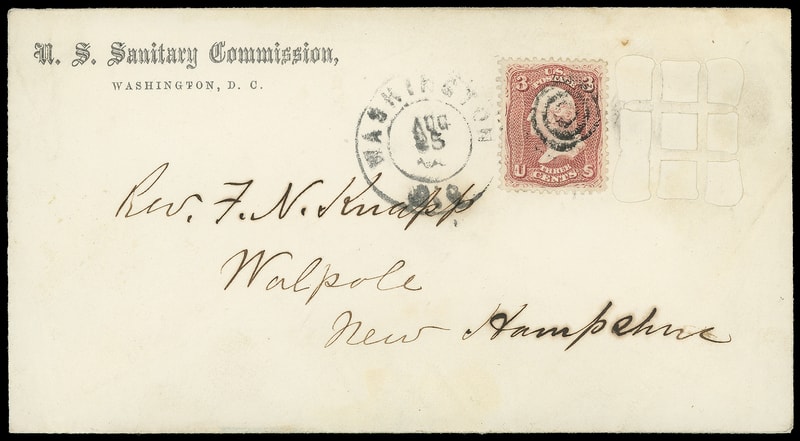 U. S. Sanitary Commission,
WASHINGTON, D. C.
WASHINGTON
AUG
25
3 U.S. POSTAGE 3
THREE
U CENTS S
Rev. F. N. Knapp
Walpole
New Hampshire